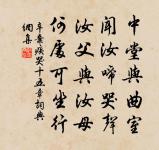 中堂與曲室
聞汝啼哭聲
汝父與汝母
何處可坐行
辛棄疾哭十五章詞典
網集